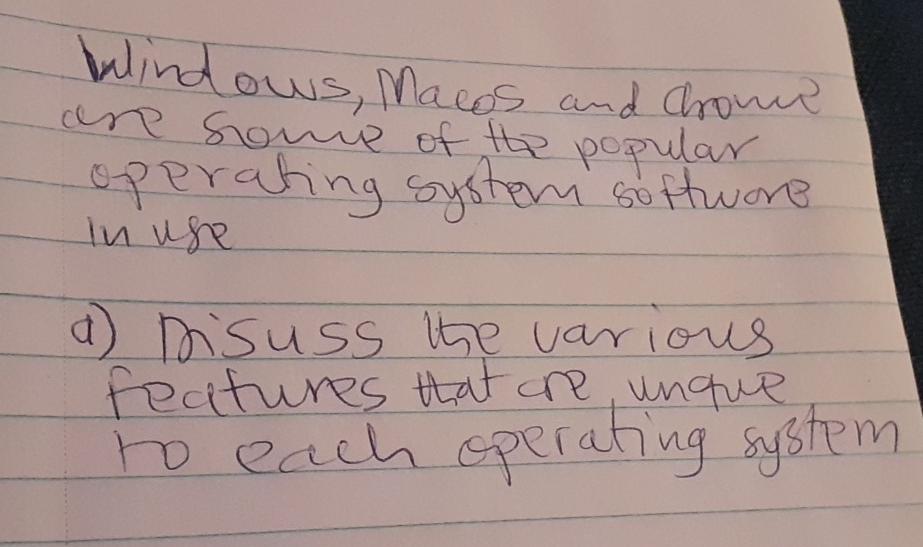 Windows, Macos and Chrome
are some of the popular
operating system software
in use
a) Disuss the various
features that are unque
to each operating system